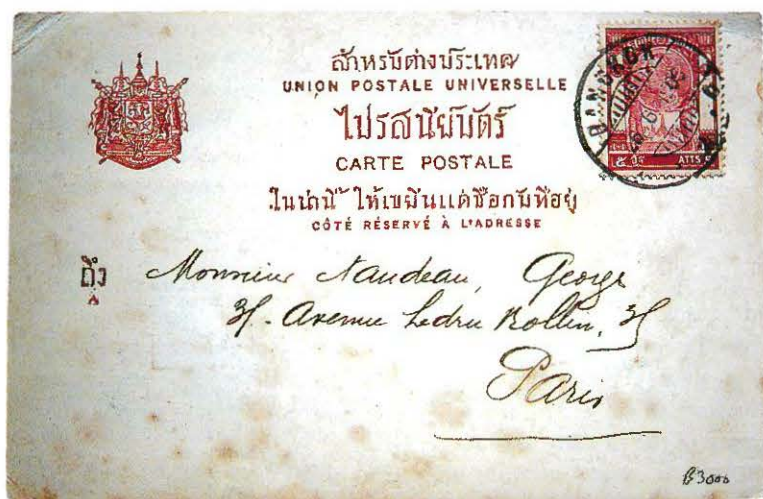 สำหรับต่างประเทศ
UNION POSTALE UNIVERSELLE
ไปรสนียบัตร์
CARTE POSTALE
ในน่านี้ ให้เขียนแต่ชื่อกับที่อยู่
CÔTÉ RÉSERVÉ À L'ADRESSE
BANGKOK
ATTS
ถึง
A
Monsieur Naudeau, George
Avenue Ledru Rollin,
Paris
฿3000